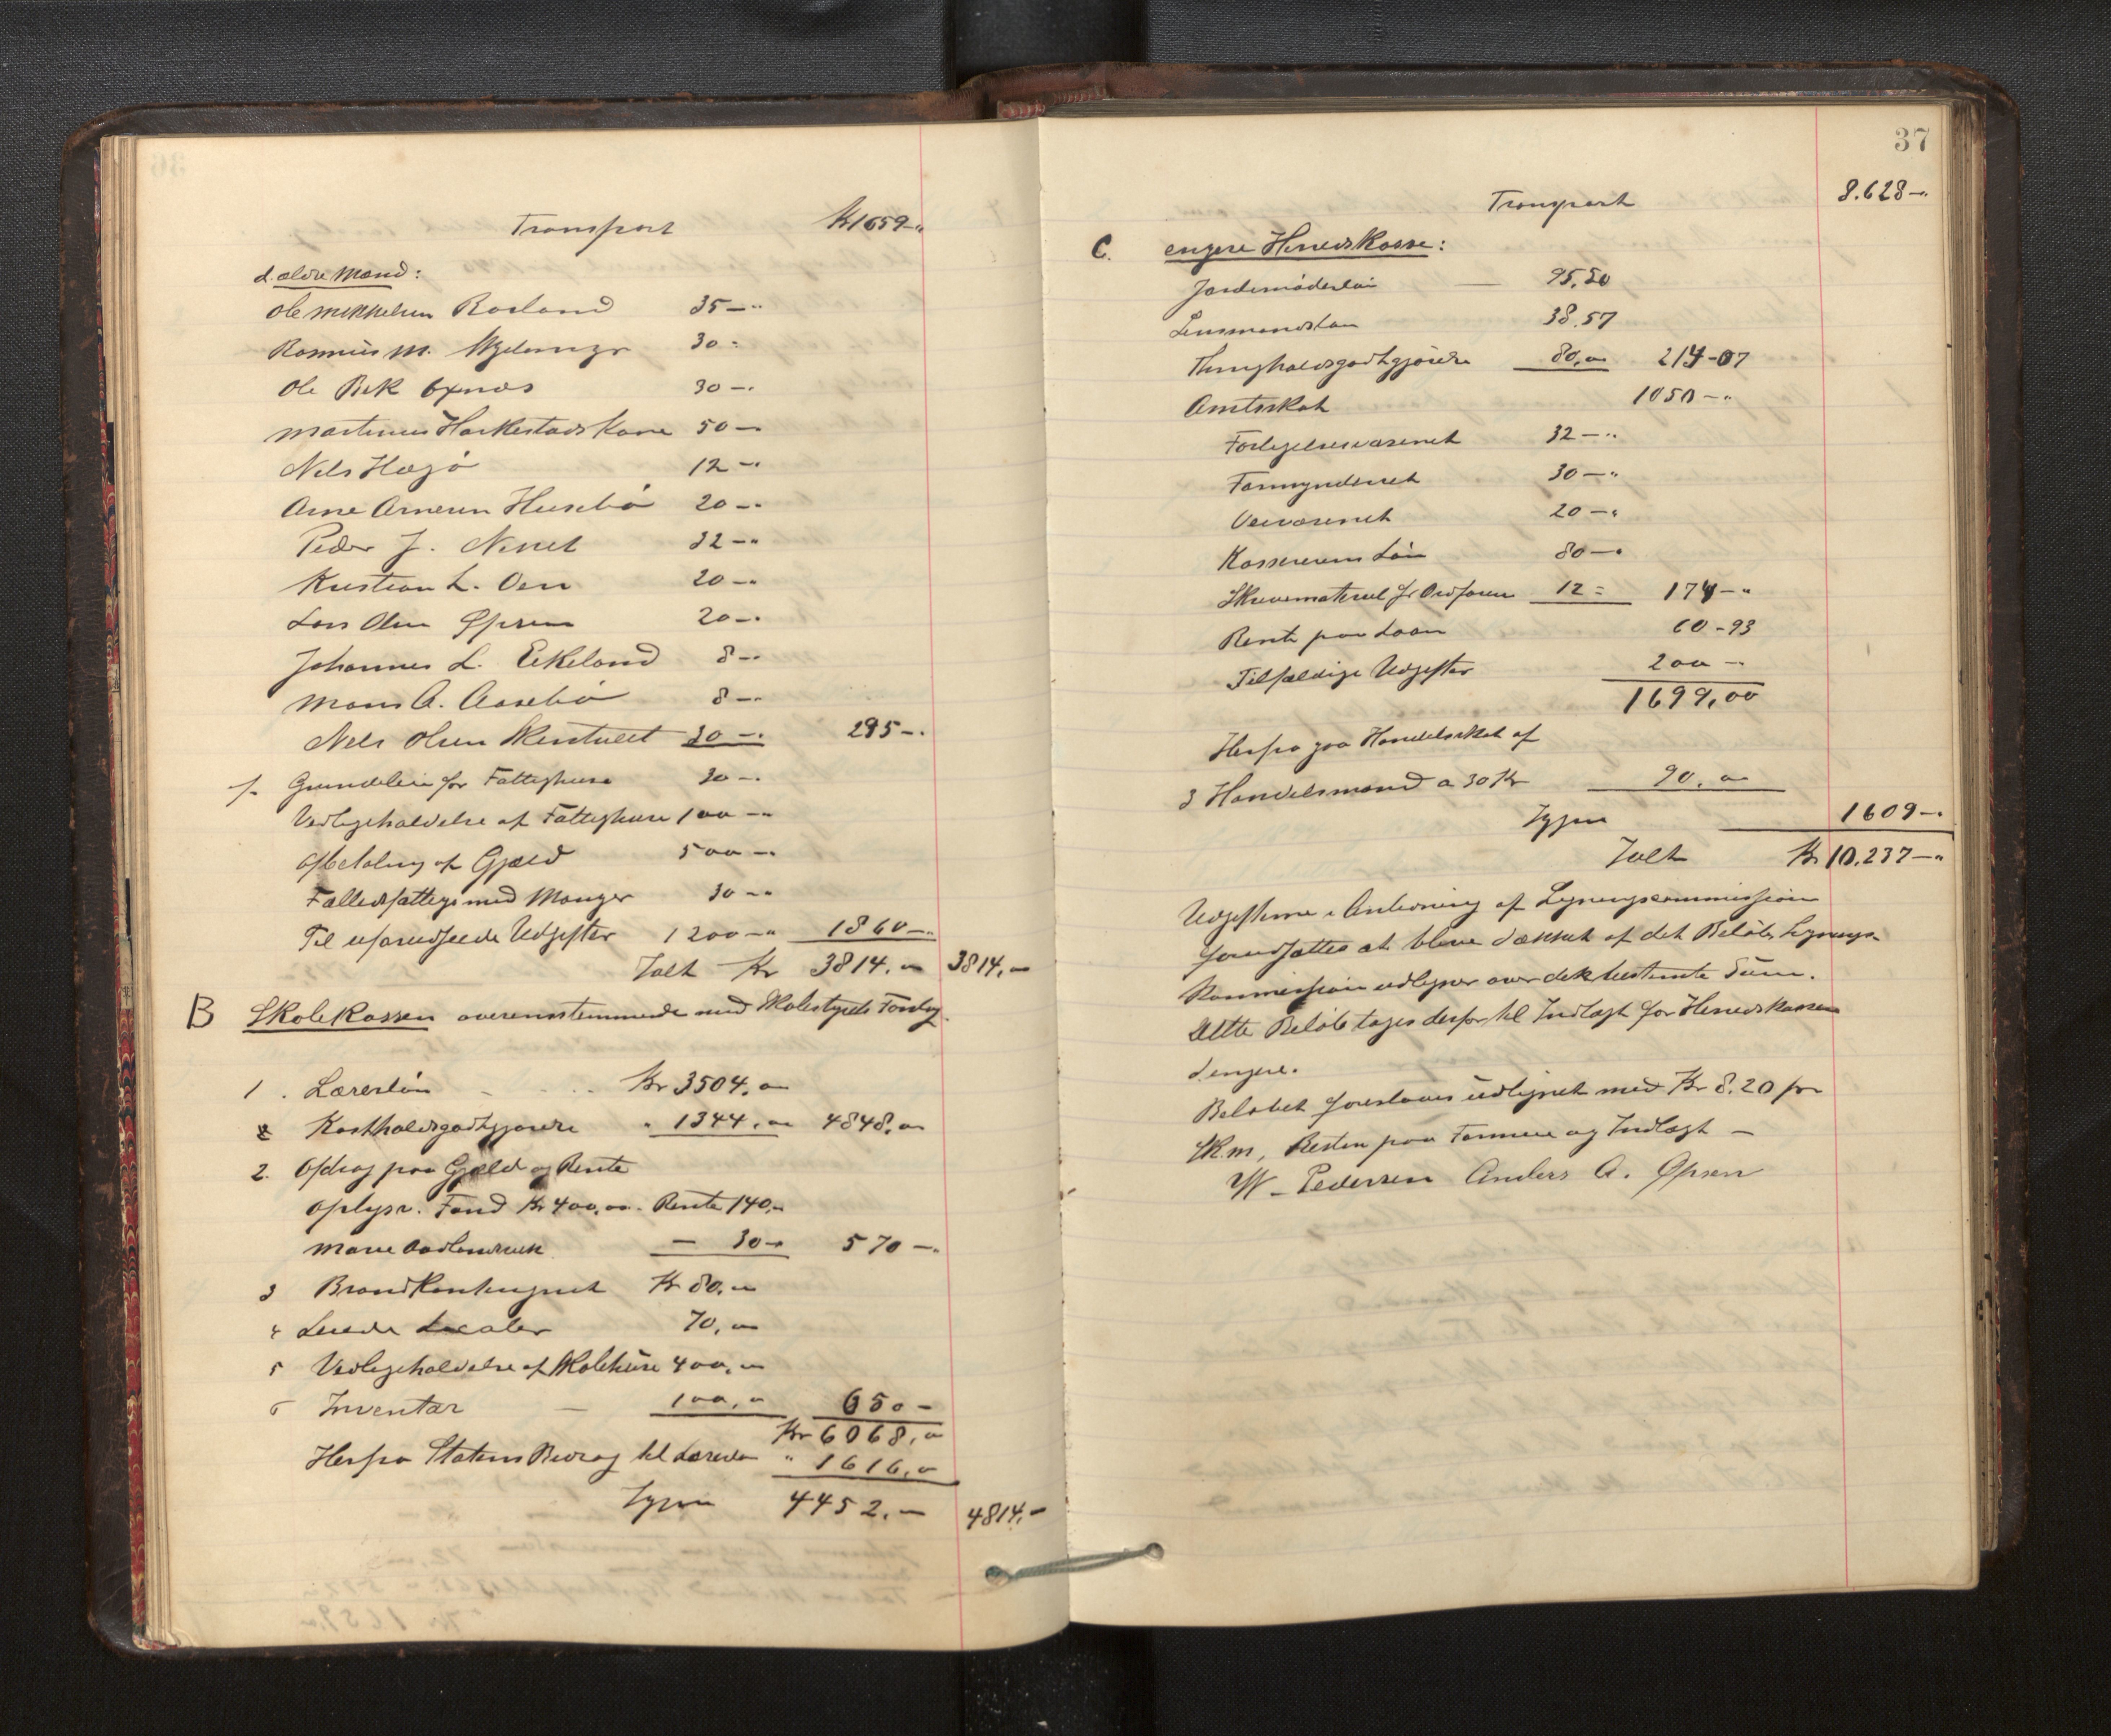 Transport Kr 1659-"
d. ældre Mænd:
Ole Mikkelsen Rosland 35-"
Rasmus M. 30-
Ole Bek Oxnæs 30-"
Martinus Harkestads Kone 50-
Nils Hægø 12-"
Arne Arnesen Husebø 20-"
Peder J. 32-"
Kristian L. Oen 20-"
Lars Olsen Øpsen 20-"
Johannes L. Eikeland 8-"
Mons A. Aasebø 8-"
Nels Olsen 30-" 295-"
f. Grundleie for Fattighuse 30-"
Vedligeholdelse af Fattighuse 100-"
Afbetaling af Gjæld 500-"
Fælledsfattige med Manger 30-"
Til uforudseede Udgifter 1200-" 1860-"
Ialt Kr 3814,00 3814,00
B Skolekassen overensstemmende med Skolestyrets Forslag.
1. Lærerløn Kr 3504,00
Kostholdsgodtgjørelse " 1344,00 4848,00
2. Afdrag paa Gjæld og Rente
Oplysn. Fond Kr 400,00. Rente 140,00
Marie - 30- 570-"
3 Brandkontingent Kr 80,00
4 Leiede Localer 70,00
5 Vedligeholdelse af Skolehuse 400,00
6 Inventar - 100,00 650-
Kr 6068,00
Herfra Statens Bidrag til Lærerløn " 1616,00
Igjen 4452,- 4814,-
37
Transport 8.628-"
C. engere Herredskasse:
Jordemoderløn - 95,50
Lensmandsløn 38,57
Thingholdsgodtgjørelse 80,00 214-07
Amtsskat 1050-"
Forligelsesvæsenet 32-"
Formynderiet 30-"
Veivæsenet 20-"
Kassererens Løn 80-"
Skrivemateriel for Ordføren 12= 174-"
Rente paa Laan 60-93
Tilfældige Udgifter 200-"
1699,00
Herfra gaa Handelsskat af
3 Handelsmænd a 30 Kr 90,00
Igjen 1609-"
Ialt Kr 10.237-"
Udgifterne i Anledning af Ligningscommission
forudsættes at blive dækket af det Beløb, Lignings-
Kommission udligner over det bestemte Sum.
Dette Beløb tages derfor til Indtægt for Herredskassen
d. engere.
Beløbet foreslaaes udlignet med Kr 8.20 pr
Sk.m, Resten paa Formue og Indtægt -
W. Pedersen Anders A. Øpsen